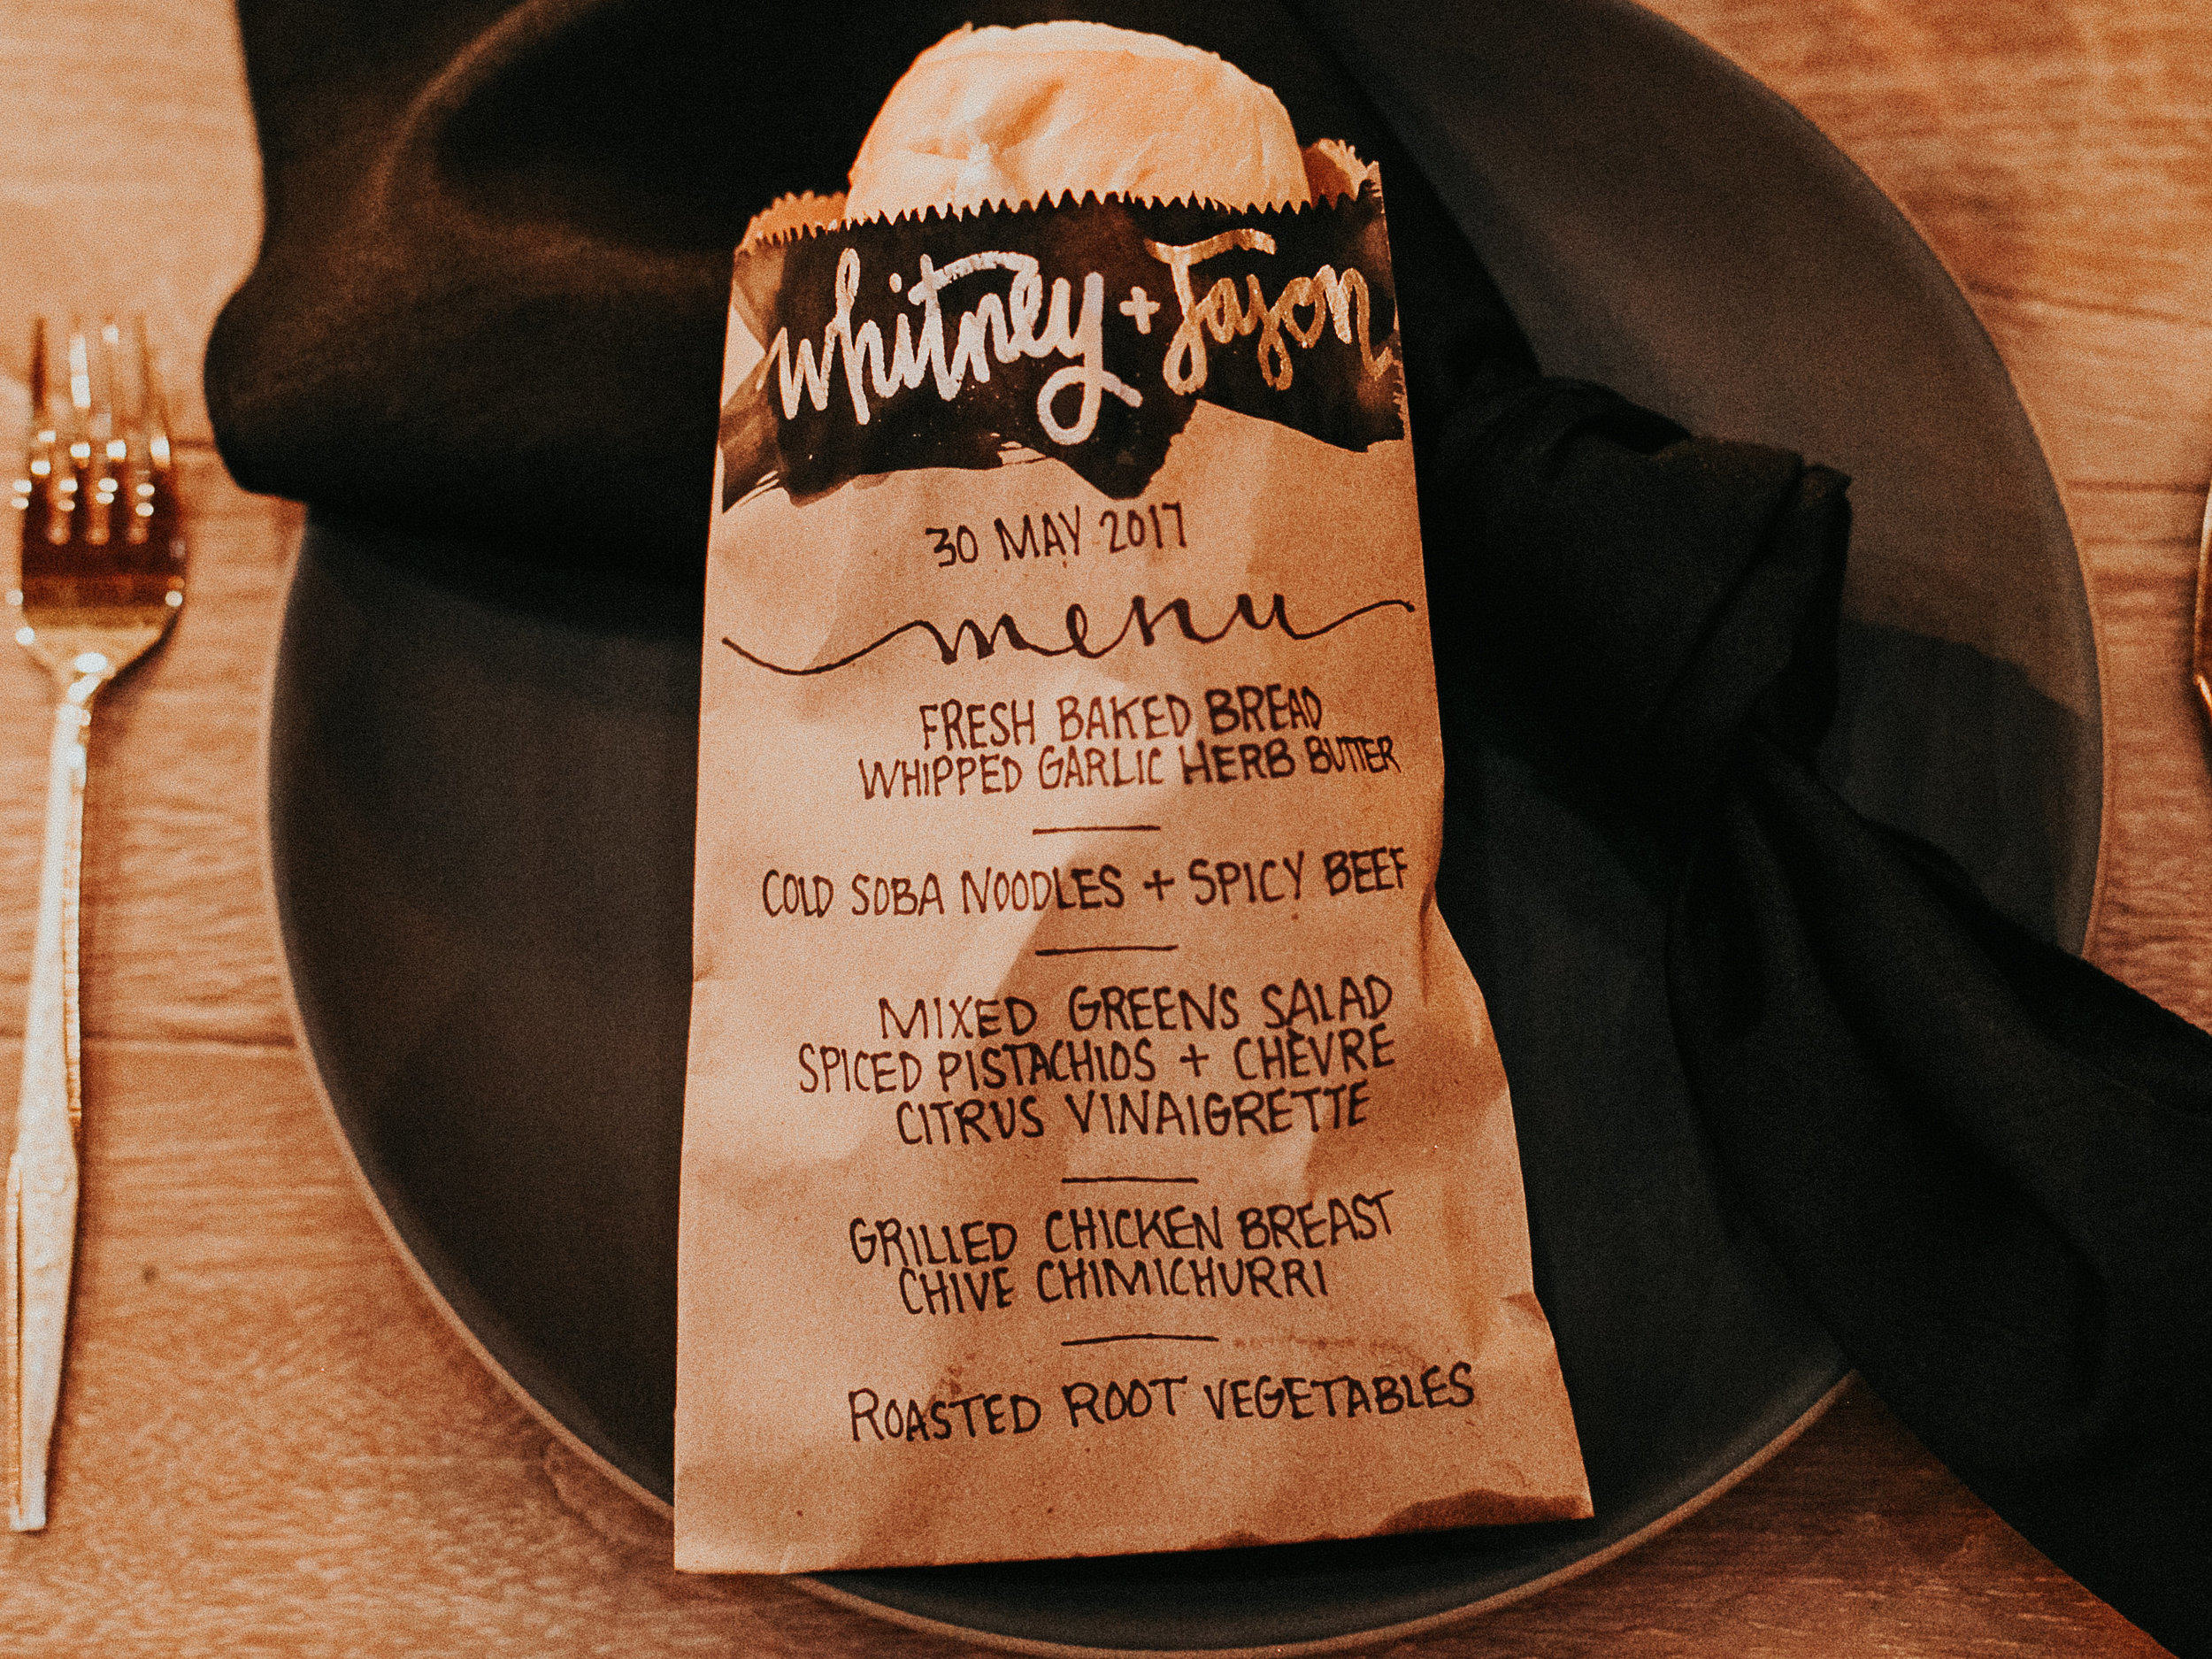 whitney + Jason
30 MAY 2017
menu
FRESH BAKED BREAD
WHIPPED GARLIC HERB BUTTER
COLD SOBA NOODLES + SPICY BEEF
MIXED GREENS SALAD
SPICED PISTACHIOS + CHÈVRE
CITRUS VINAIGRETTE
GRILLED CHICKEN BREAST
CHIVE CHIMICHURRI
ROASTED ROOT VEGETABLES